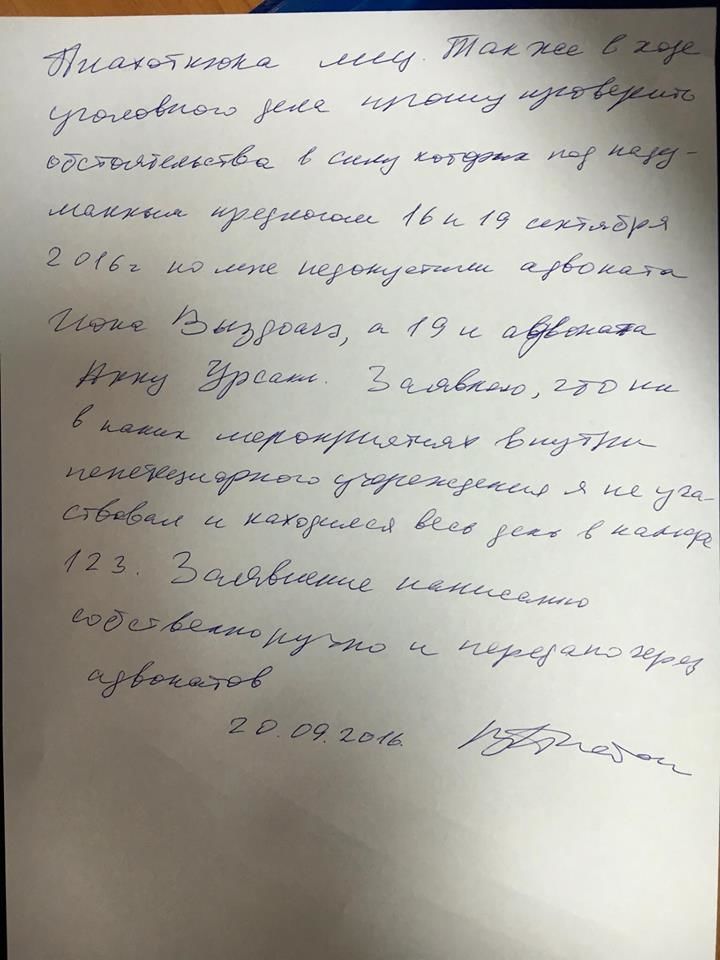 Плахотнюка лиц. Также в ходе
уголовного дела прошу проверить
обстоятельства в силу которых под наду-
манным предлогом 16 и 19 сентября
2016г ко мне недопустили адвоката
Иона Выздоагэ, а 19 и адвоката
Анну Урсаки. Заявляю, что ни
в каких мероприятиях внутри
пенетециарного учреждения я не уча-
ствовал и находился весь день в камере
123. Заявление написанно
собственноручно и передано через
адвокатов
20.09.2016.
Платон